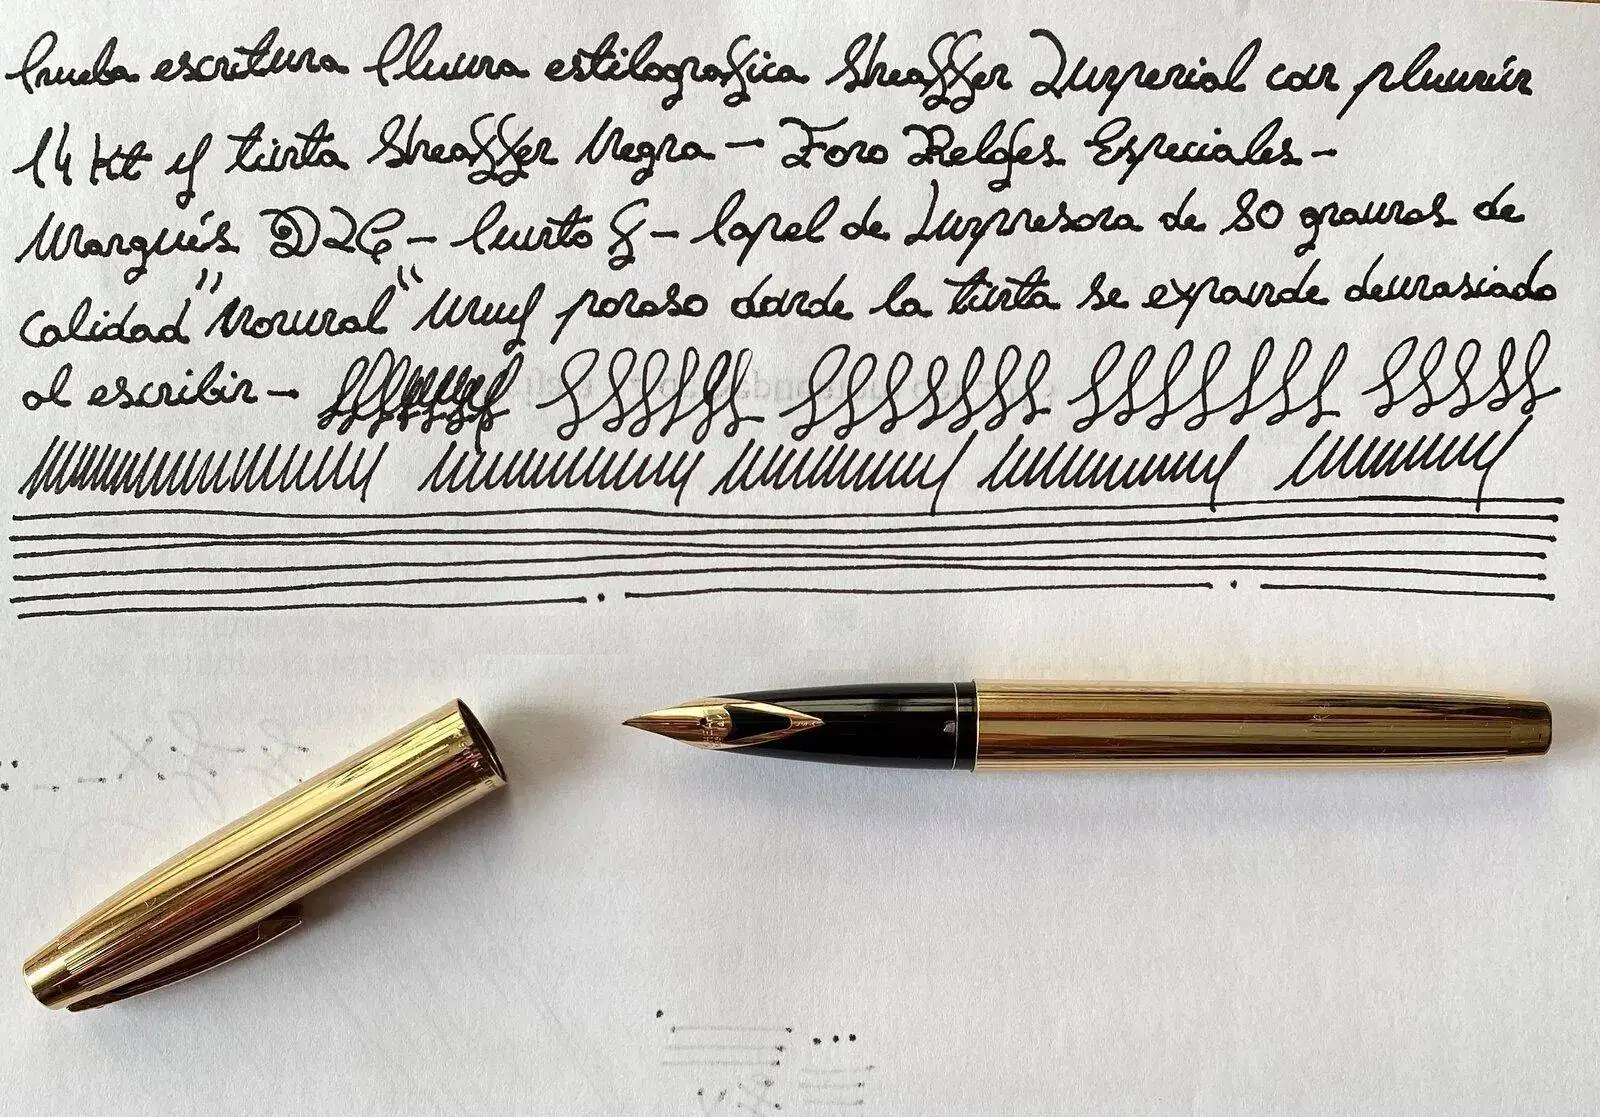 Prueba escritura Pluma estilografica Sheaffer Imperial con plumín
14 Kt y tinta Sheaffer Negra - Foro Relojes Especiales -
Marqués - Punto F - Papel de Impresora de 80 gramos de
calidad "Normal" muy poroso donde la tinta se expande demasiado
al escribir -